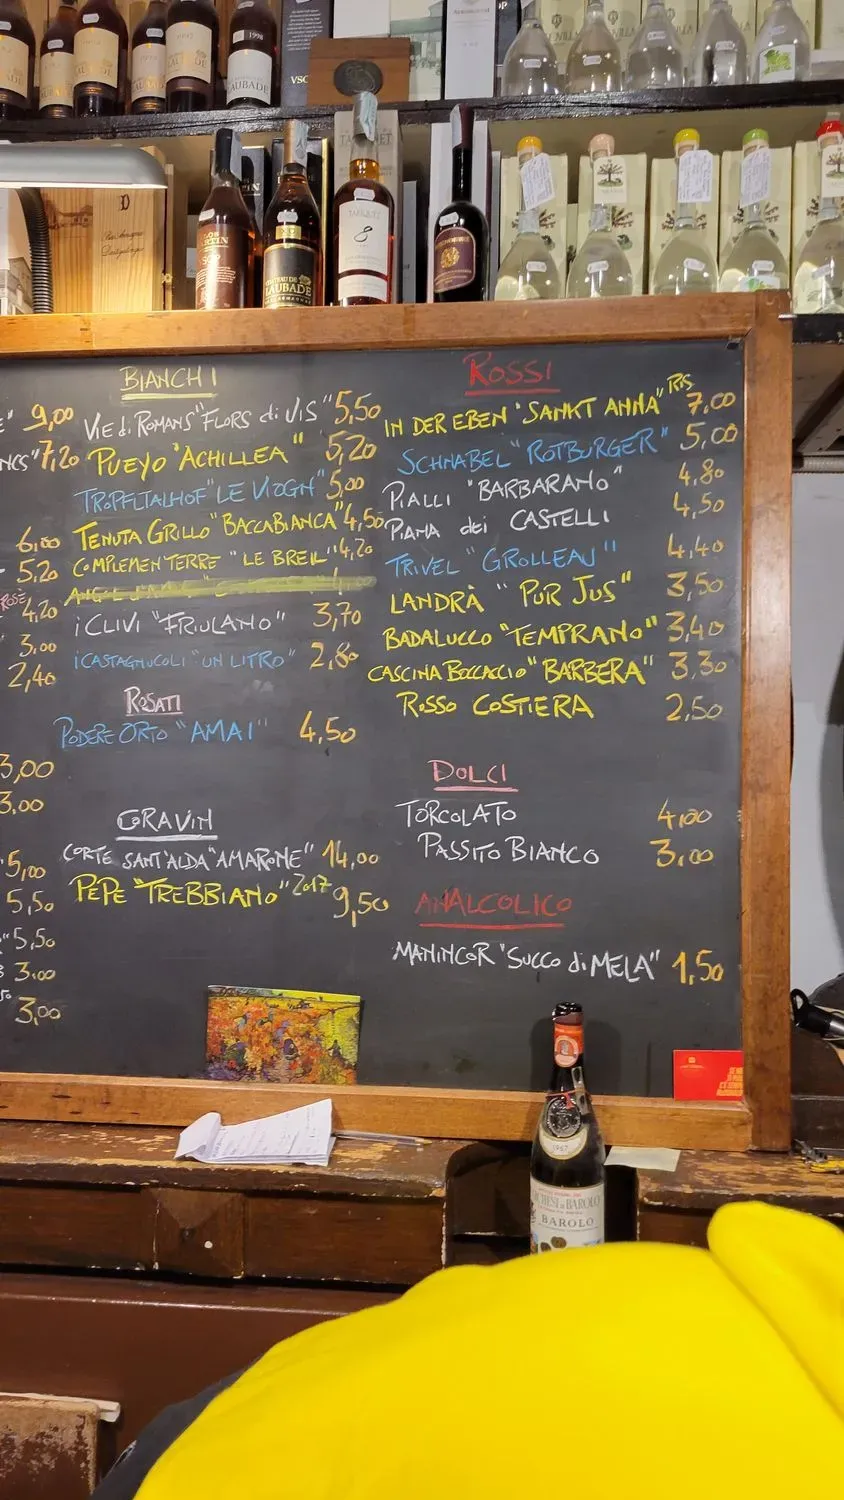 1998
LAUBADE
VSO
TARIQUET
8
CHATEAU DE
LAUBADE
9,00
7,20
6,00
5,20
ROSÉ 4,20
3,00
2,40
3,00
3,00
5,00
5,50
5,50
3,00
3,00
BIANCHI
VIE di ROMANS "FLORS di UIS" 5,50
PUEYO "ACHILLEA" 5,20
TROPFLTALHOF "LE VIOGN" 5,00
TENUTA GRILLO "BACCABIANCA" 4,50
COMPLEMEN TERRE "LE BREIL" 4,20
i CLIVI "FRIULANO" 3,70
i CASTAGNUCOLI "UN LITRO" 2,80
ROSATI
PODERE ORTO "AMAI" 4,50
CORAVIN
CORTE SANT'ALDA "AMARONE" 14,00
PEPE "TREBBIANO" 2017 9,50
ROSSI
IN DER EBEN "SANKT ANNA" RIS 7,00
SCHNABEL "ROTBURGER" 5,00
PIALLI "BARBARANO" 4,80
PIANA dei CASTELLI 4,50
TRIVEL "GROLLEAU" 4,40
LANDRÀ "PUR JUS" 3,50
BADALUCCO "TEMPRANO" 3,40
CASCINA BOCCACCIO "BARBERA" 3,30
ROSSO COSTIERA 2,50
DOLCI
TORCOLATO 4,00
PASSITO BIANCO 3,00
ANALCOLICO
MANINCOR "SUCCO di MELA" 1,50
1967
MARCHESI di BAROLO
BAROLO